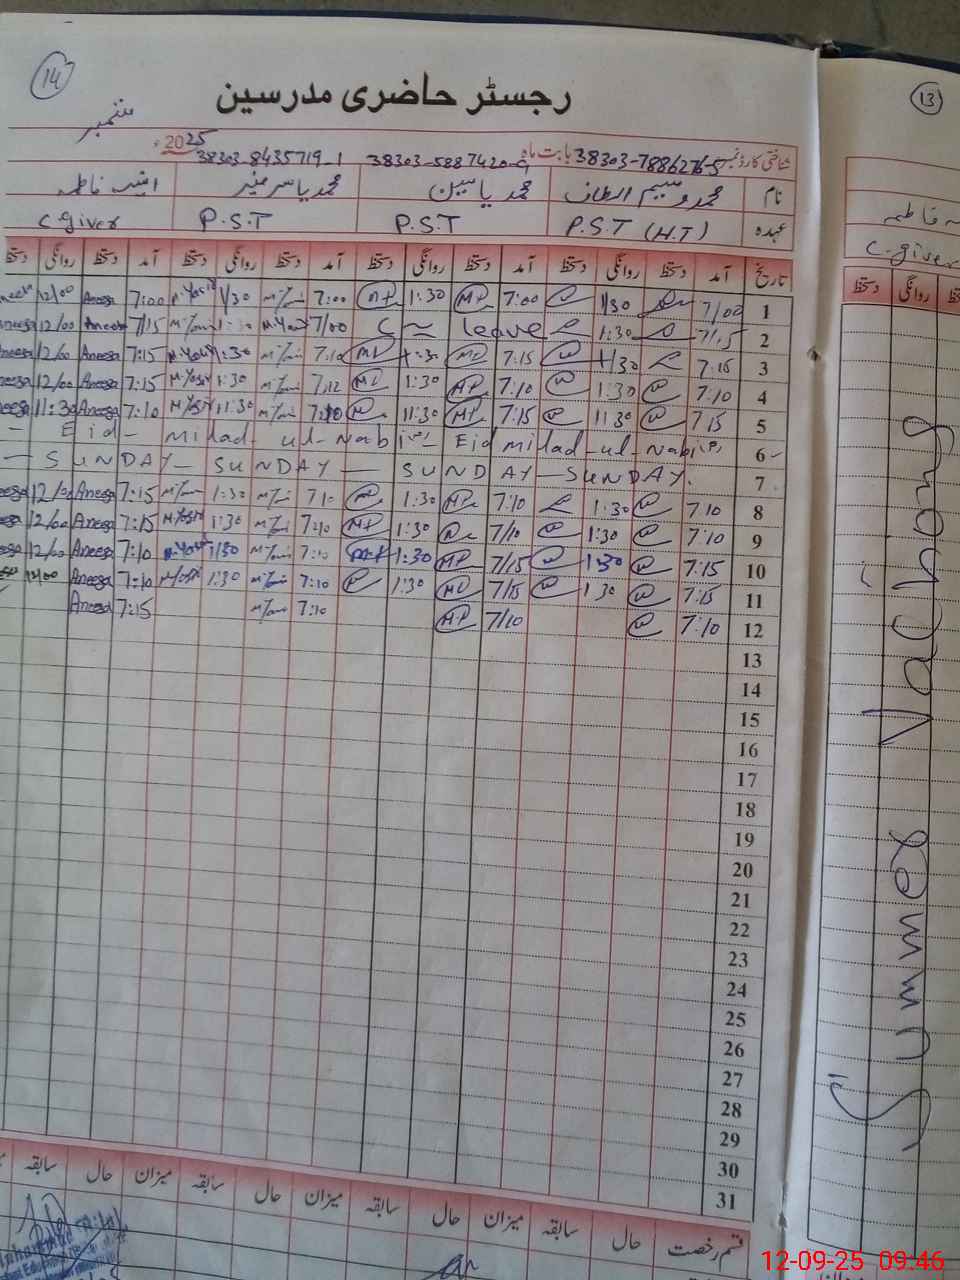 14
رجسٹر حاضری مدرسین
ستمبر
2025ء
شناختی کارڈ نمبر 38303-7886276-5 بابت ماہ 38303-5887420-9 38303-8435719-1
نام محمد وسیم الطاف محمد یاسین محمد یاسر منیر انیسہ فاطمہ
عہدہ P.S.T (H.T) P.S.T P.S.T C.giver
تاریخ آمد دستخط روانگی دستخط آمد دستخط روانگی دستخط آمد دستخط روانگی دستخط آمد دستخط روانگی دستخط
1 7/00 1/30 7:00 1:30 7:00 1/30 7:00 Aneesa 12/00
2 7/15 1:30 C leave 7/00 1:30 7/15 Aneesa 12/00
3 7:15 1/30 7:15 1:30 7:10 1:30 7:15 Aneesa 12/00
4 7:10 1:30 7:10 1:30 7:12 1:30 7:15 Aneesa 12/00
5 7:15 11:30 7:15 11:30 7:10 11:30 7:10 Aneesa 11:30
6 - Eid - milad - ul - Nabi Eid milad - ul - Nabi
7 - SUNDAY - SUNDAY - SUNDAY - SUNDAY.
8 7:10 1:30 7:10 1:30 7:10 1:30 7:15 Aneesa 12/00
9 7:10 1:30 7/10 1:30 7:10 1:30 7:15 Aneesa 12/00
10 7:15 1:30 7/15 1:30 7:10 1/30 7:10 Aneesa 12/00
11 7:15 1:30 7/15 1:30 7:10 1:30 7:10 Aneesa 12/00
12 7:10 7/10 7:10 7:15 Aneesa
13
14
15
16
17
18
19
20
21
22
23
24
25
26
27
28
29
30
31
قسم رخصت حال سابقہ میزان حال سابقہ میزان حال سابقہ میزان حال سابقہ
13
فاطمہ
C.giver
روانگی دستخط
Summer Vachong
12-09-25 09:46